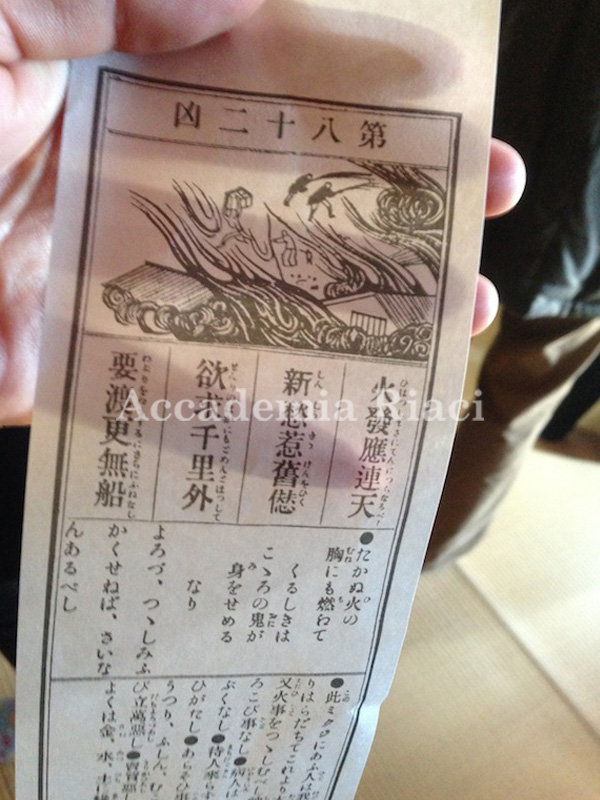 第八十二凶
火發應連天
新愁惹舊愆
欲求千里外
要渡更無船
●たかぬ火の
胸にも燃わて
くるしきは
こゝろの鬼が
身をせめる
なり
よろづ、つゝしみふ
かくせねば、さいな
んあるべし
●此ミクジにあふ人は
りはらだちてこれより
又火事をつゝしむべし
ろこび事なし●病人は
ぶくなし●待人来らず
ひがたし●あらそひ事
うつり、ふしん、む
び立萬悪し●賣買悪し
よくは金、水、土に
Accademia Riaci